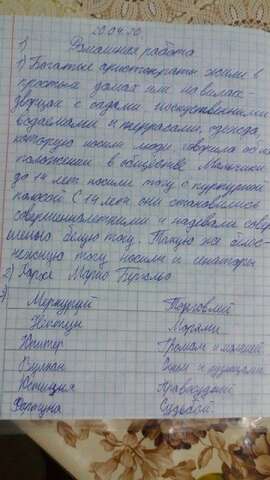 20.04.20.
1) Домашняя работа
1) Богатые аристократы жили в
простых домах или на виллах-
дворцах с садами искуственними
водаемами и террасами, одежда,
которую носили люди говорила об их
положении в обществе Мальчики
до 14 лет носили тогу с пурпурной
полосой. С 14 лет они становились
совершеннолетними и надевали совер
шенно белую тогу. Такую же бело
снежную тогу носили и сенаторы
2)
Меркурий Торговлей
Нептун Морями
Юпитер Громом и молнией
Вулкан Огнём и кузнецами
Юстиция Правосудией
Фортуна Судьбой.